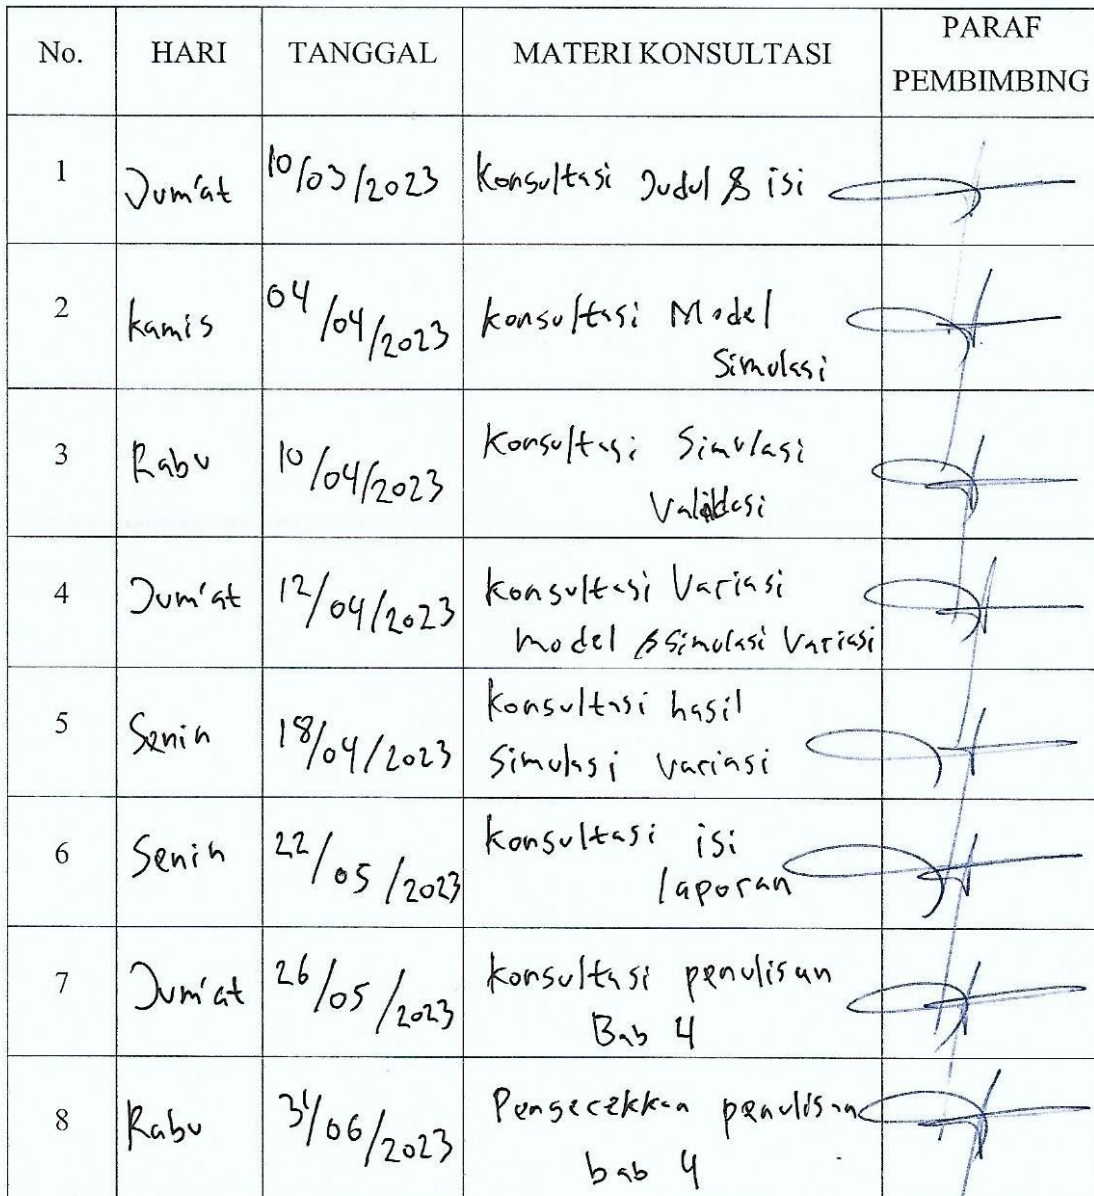 No. HARI TANGGAL MATERI KONSULTASI PARAF
PEMBIMBING
1 Jum'at 10/03/2023 Konsultasi Judul & isi
2 kamis 04/04/2023 konsultasi Model
Simulasi
3 Rabu 10/04/2023 Konsultasi Simulasi
Validasi
4 Jum'at 12/04/2023 konsultasi Variasi
model & Simulasi Variasi
5 Senin 18/04/2023 konsultasi hasil
Simulasi variasi
6 Senin 22/05/2023 konsultasi isi
laporan
7 Jum'at 26/05/2023 konsultasi penulisan
Bab 4
8 Rabu 31/06/2023 Pengecekkan penulisan
bab 4